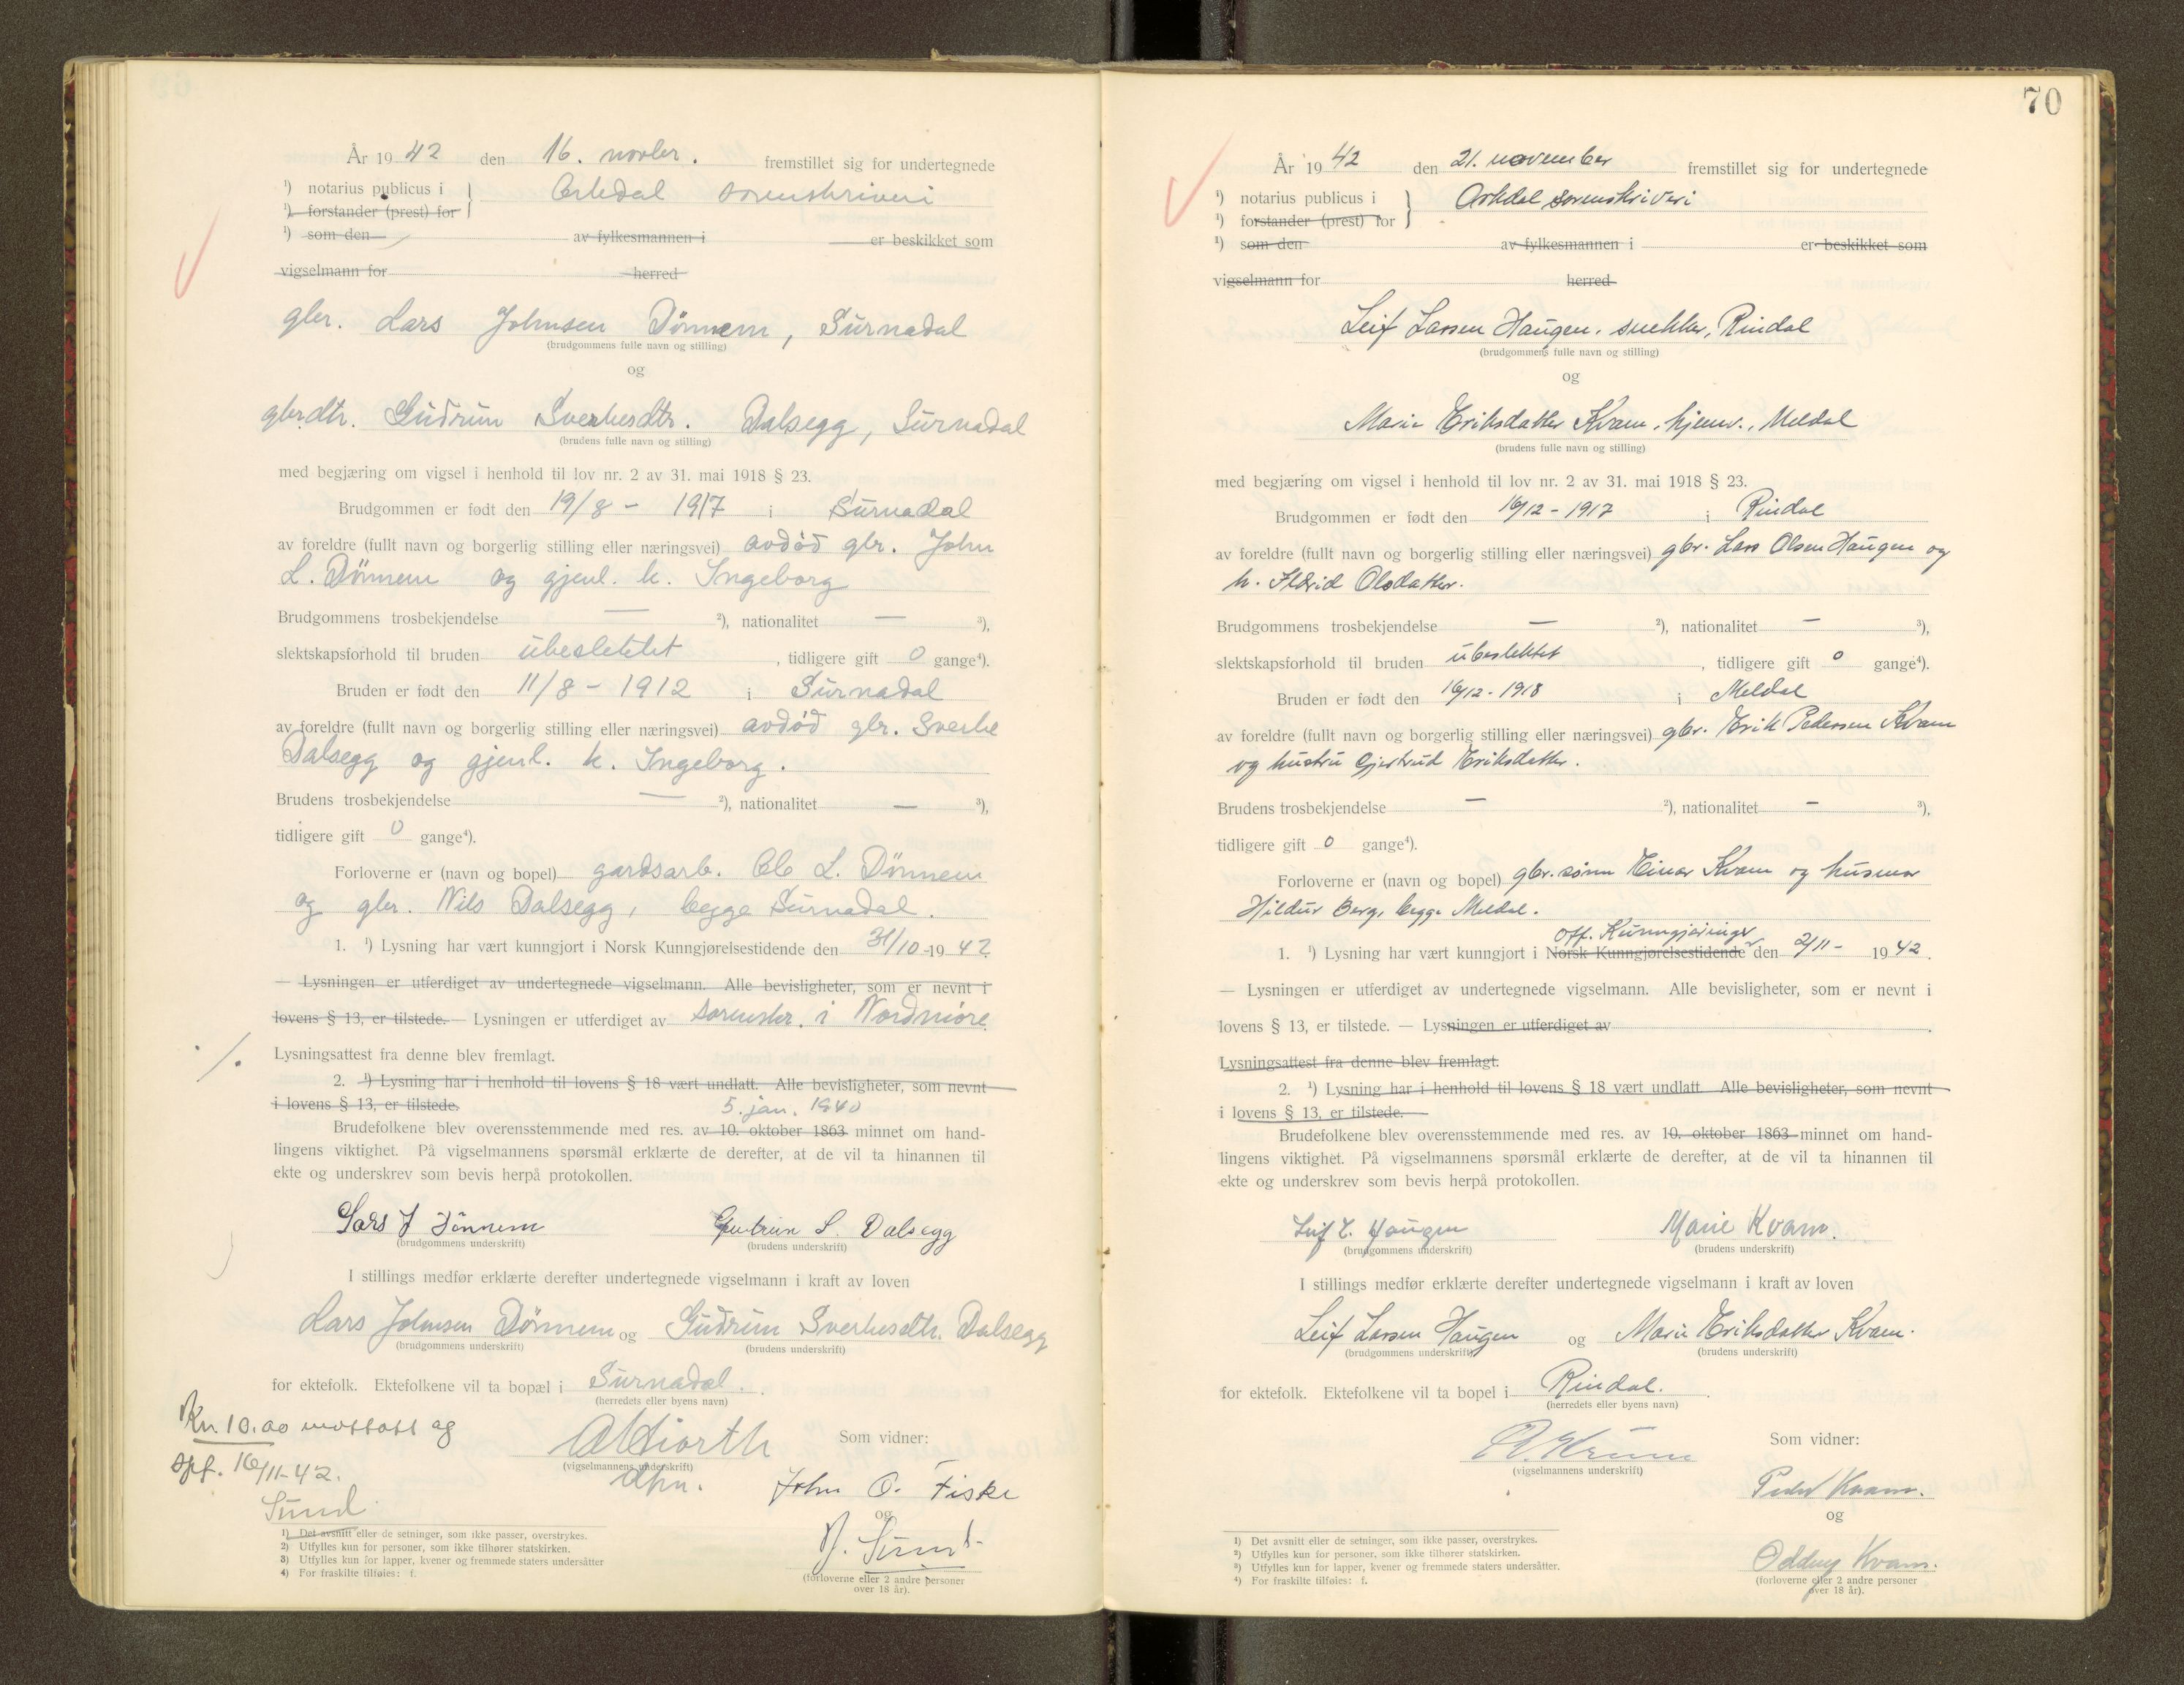 År 19 42 den 16. novbr. fremstillet sig for undertegnede
¹) notarius publicus i } Orkedal sorenskriveri
¹) forstander (prest) for
¹) som den av fylkesmannen i er beskikket som
vigselmann for herred
gbr. Lars Johnsen Dönnem, Surnadal
(brudgommens fulle navn og stilling)
og
gbrdtr. Gudrun Sverkesdtr. Dalsegg, Surnadal
(brudens fulle navn og stilling)
med begjæring om vigsel i henhold til lov nr. 2 av 31. mai 1918 § 23.
Brudgommen er født den 19/8 - 1917 i Surnadal
av foreldre (fullt navn og borgerlig stilling eller næringsvei) avdød gbr. John
L. Dönnem og gjenl. k. Ingeborg
Brudgommens trosbekjendelse — ²), nationalitet — ³),
slektskapsforhold til bruden ubeslektet, tidligere gift 0 gange⁴).
Bruden er født den 11/8 - 1912 i Surnadal
av foreldre (fullt navn og borgerlig stilling eller næringsvei) avdød gbr. Sverke
Dalsegg og gjenl. k. Ingeborg.
Brudens trosbekjendelse — ²), nationalitet — ³),
tidligere gift 0 gange⁴).
Forloverne er (navn og bopel) gardsarb. Ole L. Dönnem
og gbr. Nils Dalsegg, begge Surnadal.
1. ¹) Lysning har vært kunngjort i Norsk Kunngjørelsestidende den 31/10-19 42
— Lysningen er utferdiget av undertegnede vigselmann. Alle bevisligheter, som er nevnt i
lovens § 13, er tilstede. — Lysningen er utferdiget av sorenskr. i Nordmøre
./.
Lysningsattest fra denne blev fremlagt.
2. ¹) Lysning har i henhold til lovens § 18 vært undlatt. Alle bevisligheter, som nevnt
i lovens § 13, er tilstede. 5. jan. 1940
Brudefolkene blev overensstemmende med res. av 10. oktober 1863 minnet om hand-
lingens viktighet. På vigselmannens spørsmål erklærte de derefter, at de vil ta hinannen til
ekte og underskrev som bevis herpå protokollen.
Lars J Dønnem Gudrun S. Dalsegg
(brudgommens underskrift) (brudens underskrift)
I stillings medfør erklærte derefter undertegnede vigselmann i kraft av loven
Lars Johnsen Dönnem og Gudrun Sverkesdtr. Dalsegg
(brudgommens underskrift) (brudens underskrift)
for ektefolk. Ektefolkene vil ta bopæl i Surnadal.
(herredets eller byens navn)
Kr. 10.00 mottatt og
opf. 16/11-42.
Sund
Som vidner:
(vigselmannens underskrift)
John O. Fiske
og
N. Sund
(forloverne eller 2 andre personer
over 18 år).
1) Det avsnitt eller de setninger, som ikke passer, overstrykes.
2) Utfylles kun for personer, som ikke tilhører statskirken.
3) Utfylles kun for lapper, kvener og fremmede staters undersåtter
4) For fraskilte tilføies: f.
70
År 19 42 den 21. november fremstillet sig for undertegnede
¹) notarius publicus i } Orkdal sorenskriveri
¹) forstander (prest) for
¹) som den av fylkesmannen i er beskikket som
vigselmann for herred
Leif Larsen Haugen, snekker, Rindal
(brudgommens fulle navn og stilling)
og
Marie Eriksdatter Kvam, hjemv., Meldal
(brudens fulle navn og stilling)
med begjæring om vigsel i henhold til lov nr. 2 av 31. mai 1918 § 23.
Brudgommen er født den 16/12 - 1917 i Rindal
av foreldre (fullt navn og borgerlig stilling eller næringsvei) gbr. Lars Olsen Haugen og
h. Ildrid Olsdatter.
Brudgommens trosbekjendelse — ²), nationalitet — ³),
slektskapsforhold til bruden ubeslektet, tidligere gift 0 gange⁴).
Bruden er født den 16/12 - 1918 i Meldal
av foreldre (fullt navn og borgerlig stilling eller næringsvei) gbr. Erik Pedersen Kvam
og hustru Gjertrud Eriksdatter.
Brudens trosbekjendelse — ²), nationalitet — ³),
tidligere gift 0 gange⁴).
Forloverne er (navn og bopel) gbr. sønn Einar Kvam og husmor
Hildur Berg, begge Meldal.
Off. Kunngjøringer
1. ¹) Lysning har vært kunngjort i Norsk Kunngjørelsestidende den 2/11 - 19 42.
— Lysningen er utferdiget av undertegnede vigselmann. Alle bevisligheter, som er nevnt i
lovens § 13, er tilstede. — Lysningen er utferdiget av
Lysningsattest fra denne blev fremlagt.
2. ¹) Lysning har i henhold til lovens § 18 vært undlatt Alle bevisligheter, som nevnt
i lovens § 13, er tilstede.
Brudefolkene blev overensstemmende med res. av 10. oktober 1863 minnet om hand-
lingens viktighet. På vigselmannens spørsmål erklærte de derefter, at de vil ta hinannen til
ekte og underskrev som bevis herpå protokollen.
Leif L. Haugen Marie Kvam.
(brudgommens underskrift) (brudens underskrift)
I stillings medfør erklærte derefter undertegnede vigselmann i kraft av loven
Leif Larsen Haugen og Marie Eriksdatter Kvam.
(brudgommens underskrift) (brudens underskrift)
for ektefolk. Ektefolkene vil ta bopel i Rindal.
(herredets eller byens navn)
Som vidner:
(vigselmannens underskrift)
Peder Kvam.
og
Oddny Kvam.
(forloverne eller 2 andre personer
over 18 år).
¹) Det avsnitt eller de setninger, som ikke passer, overstrykes.
²) Utfylles kun for personer, som ikke tilhører statskirken.
³) Utfylles kun for lapper, kvener og fremmede staters undersåtter.
⁴) For fraskilte tilføies: f.